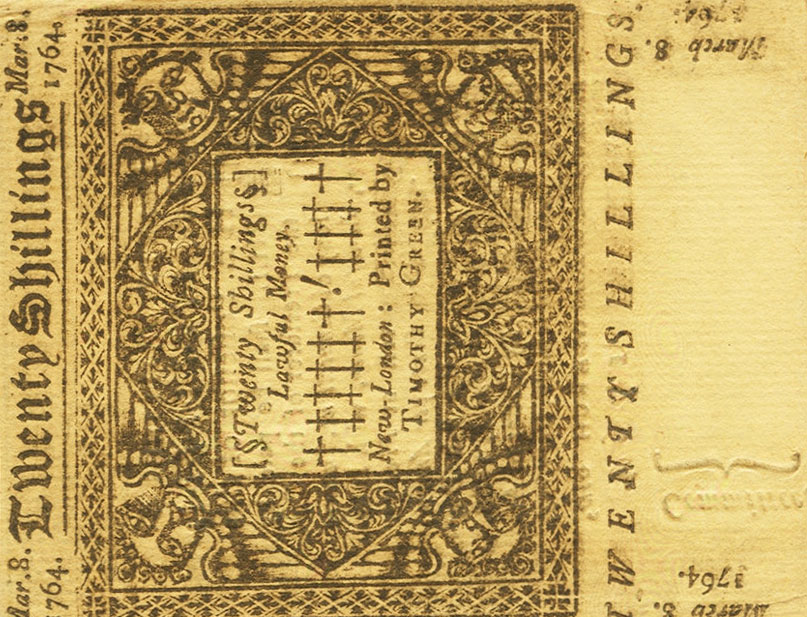 Mar. 8. Twenty Shillings Mar. 8.
1764. 1764.
[§Twenty Shillings§]
Lawful Money.
‡‡‡‡‡!‡‡‡‡
New-London: Printed by
TIMOTHY GREEN.
TWENTY SHILLINGS.
March 8.
1764.
March 8.
1764.
Committee